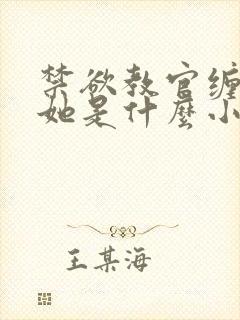 禁欲教官缠
她是什麼小
王某海